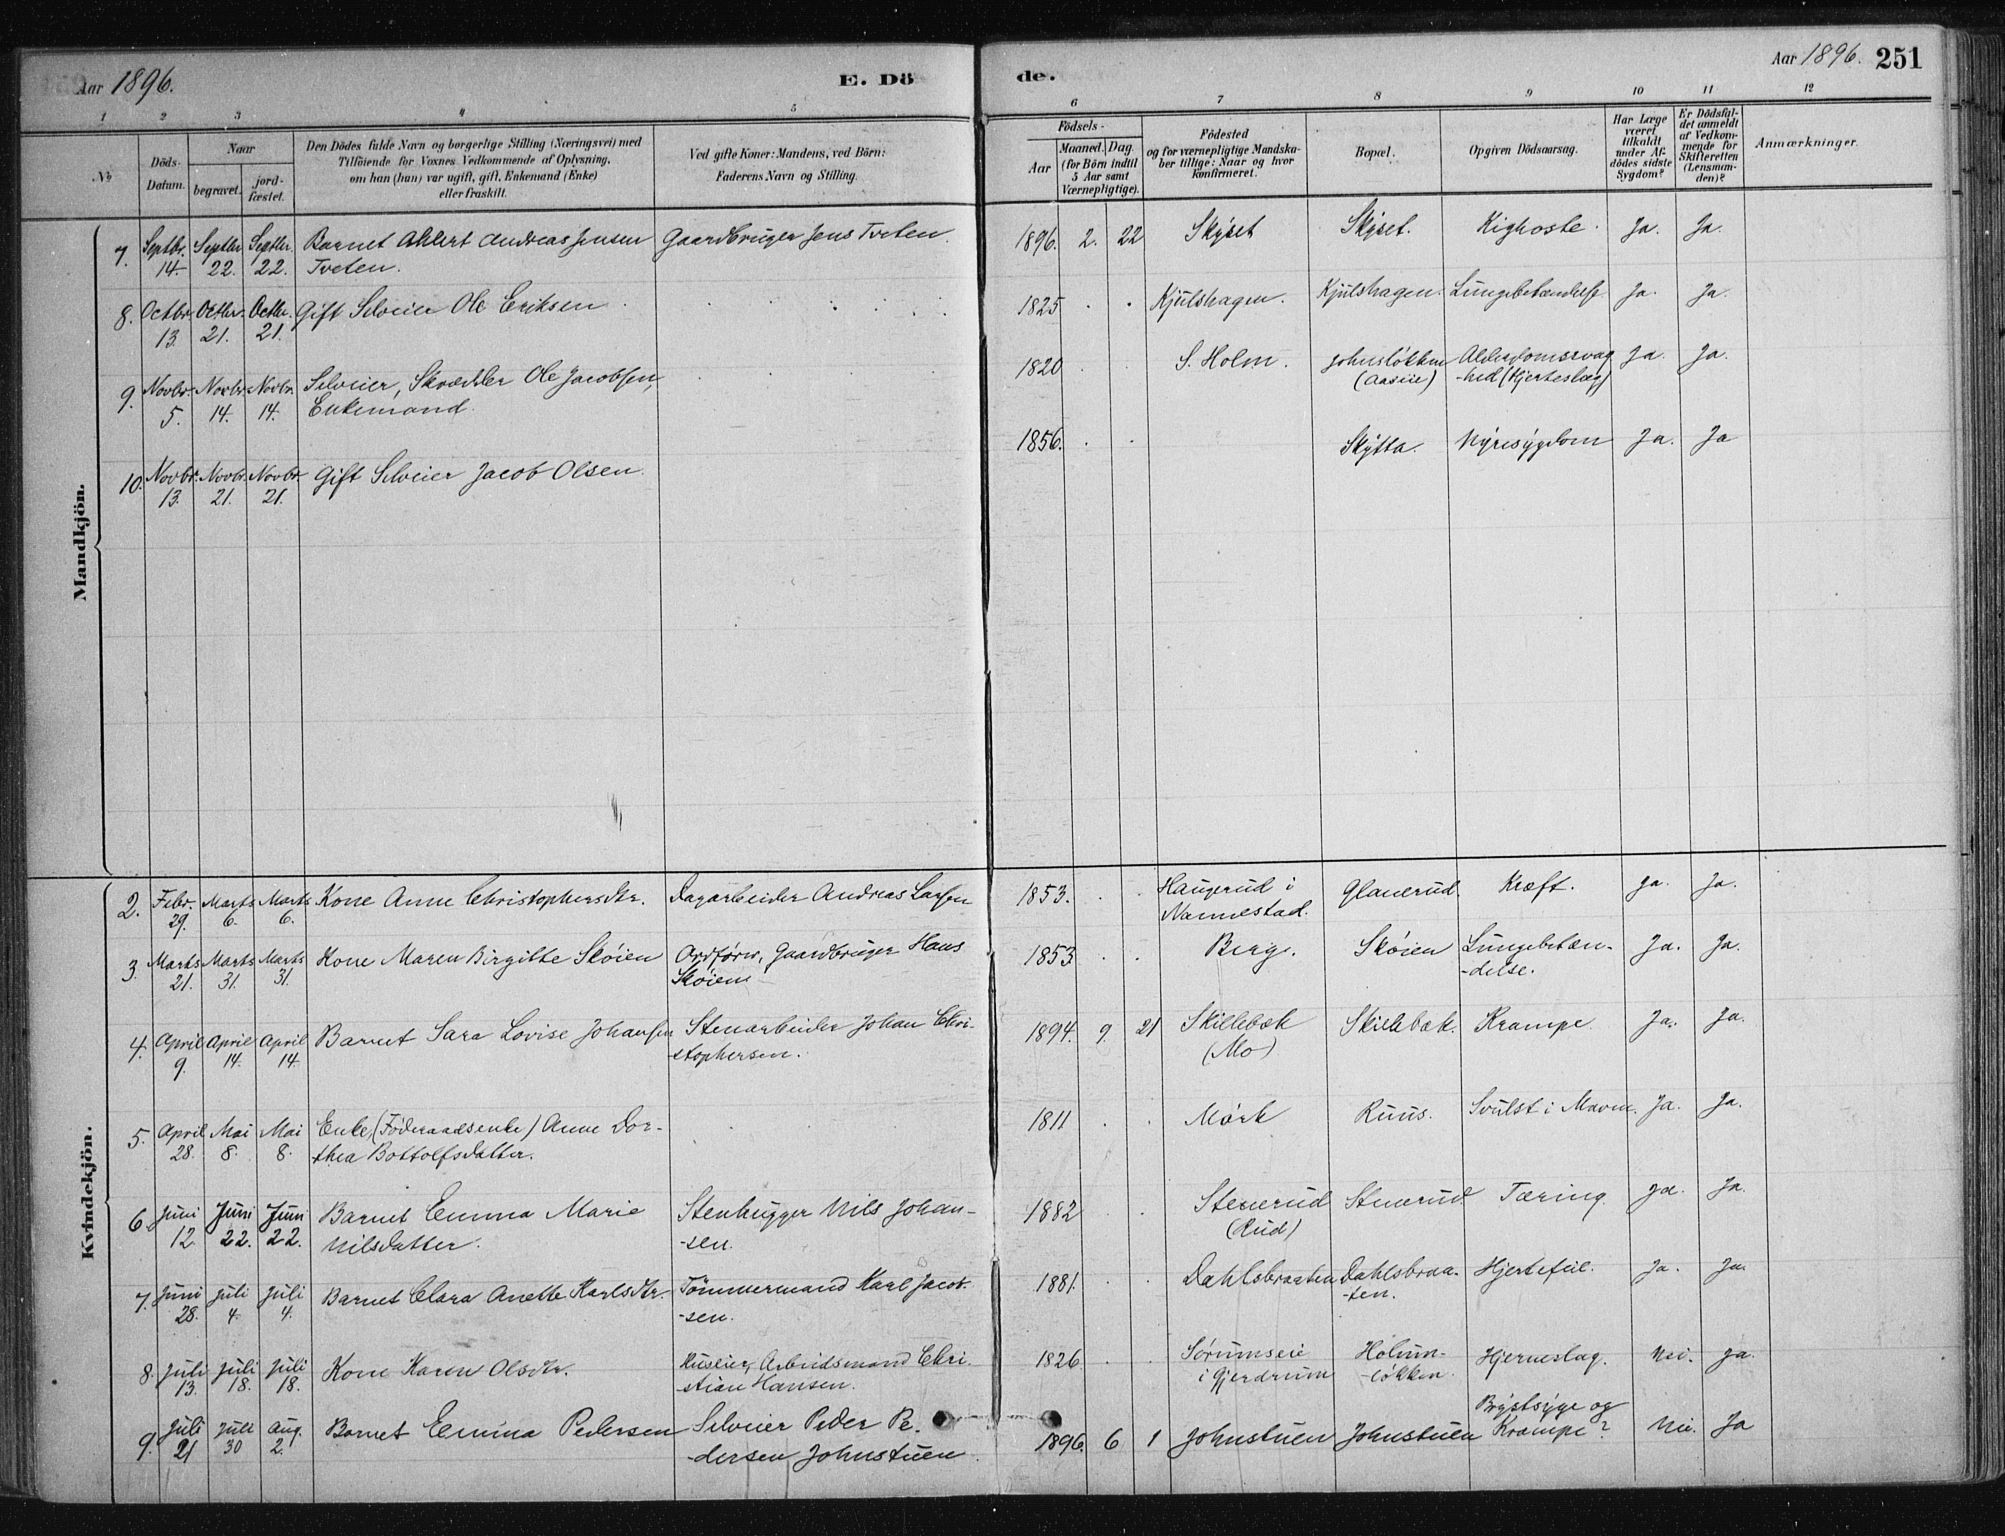 Aar 1896.
E. Dö
de.
Aar 1896. 251
1 2 3 4 5 6 7 8 9 10 11 12
No
Döds-Datum.
Naar
begravet.
jord-fæstet.
Den Dödes fulde Navn og borgerlige Stilling (Næringsvei) med
Tilföiende for Voxnes Vedkommende af Oplysning,
om han (hun) var ugift, gift, Enkemand (Enke)
eller fraskilt.
Ved gifte Koner: Mandens, ved Börn:
Faderens Navn og Stilling.
Födsels-
Aar
Maaned. Dag.
(for Börn indtil
5 Aar samt
Værnepligtige).
Födested
og for værnepligtige Mandska-
ber tillige: Naar og hvor
Konfirmeret.
Bopæl.
Opgiven Dödsaarsag.
Har Læge
været
tilkaldt
under Af-
dödes sidste
Sygdom?
Er Dödsfal-
det anmeldt
af Vedkom-
mende for
Skifteretten
(Lensman-
den)?
Anmærkninger.
Mandkjön.
7. Septbr. 14 Septbr. 22. Septbr. 22. Barnet Ahlert Andreas Jensen Gaardbruger Jens Tveten. 1896. 2. 22 Skýset Skýset. Kighoste. Ja. Ja.
Tveten.
8. Octbr. 13. Octbr. 21. Octbr. 21. Gift Selveier Ole Eriksen 1825 Kjulshagen. Kjulshagen. Lungebetændelse Ja. Ja.
9. Novbr. 5. Novbr. 14. Novbr. 14. Selveier, Skrædder Ole Jacobsen, 1820 S. Holm. Johnsløkken Alderdomssvag Ja. Ja.
Enkemand. (Aaseie) -hed (Hjerteslag)
10. Novbr. 13. Novbr. 21. Novbr. 21. Gift Selveier Jacob Olsen. 1856. Skýtta. Nýresýgdom Ja. Ja
Kvindekjön.
2. Febr. 29. Marts 6. Marts 6. Kone Anne Christophersdtr. Dagarbeider Andreas Larsen 1853. Haugerud i Glanerud. Kræft. Ja. Ja.
Nannestad.
3. Marts 21. Marts 31. Marts 31. Kone Maren Birgitte Skøien Ordfører, Gaardbruger Hans 1853 Berg. Skøien Lungebetæn- Ja. Ja.
Skøien -delse.
4. April 9. April 14. April 14. Barnet Sara Lovise Johansen Stenarbeider Johan Chri- 1894. 9. 21 Skillebæk Skillebæk. Krampe. Ja. Ja.
-stophersen. (Mo)
5. April 28. Mai 8. Mai 8. Enke, (Føderaadsenke) Anne Dor- 1811 Mørk Ruus. Svulst i Maven. Ja. Ja.
thea Bottolfsdatter.
6. Juni 12. Juni 22. Juni 22. Barnet Emma Marie Stenhugger Nils Johan- 1882 Stenerud Stenerud Tæring. Ja. Ja.
Nilsdatter. -sen. (Rud)
7. Juni 28. Juli 4. Juli 4. Barnet Clara Anette Karlsdtr. Tömmermand Karl Jacob- 1881. Dahlsbraaten Dahlsbraa- Hjertefeil. Ja. Ja.
-sen. -ten.
8. Juli 13. Juli 18. Juli 18. Kone Karen Olsdtr. Huseier, Arbeidsmand Chri- 1826. Sørumseie Holum- Hjerneslag. Nei. Ja.
-stian Hansen. i Gjerdrum -løkken.
9. Juli 21 Juli 30 Aug. 2. Barnet Emma Pedersen Selveier Peder Pe- 1896. 6 1 Johnstuen Johnstuen Brýstsýge og Nei. Ja
-dersen Johnstuen. Krampe?